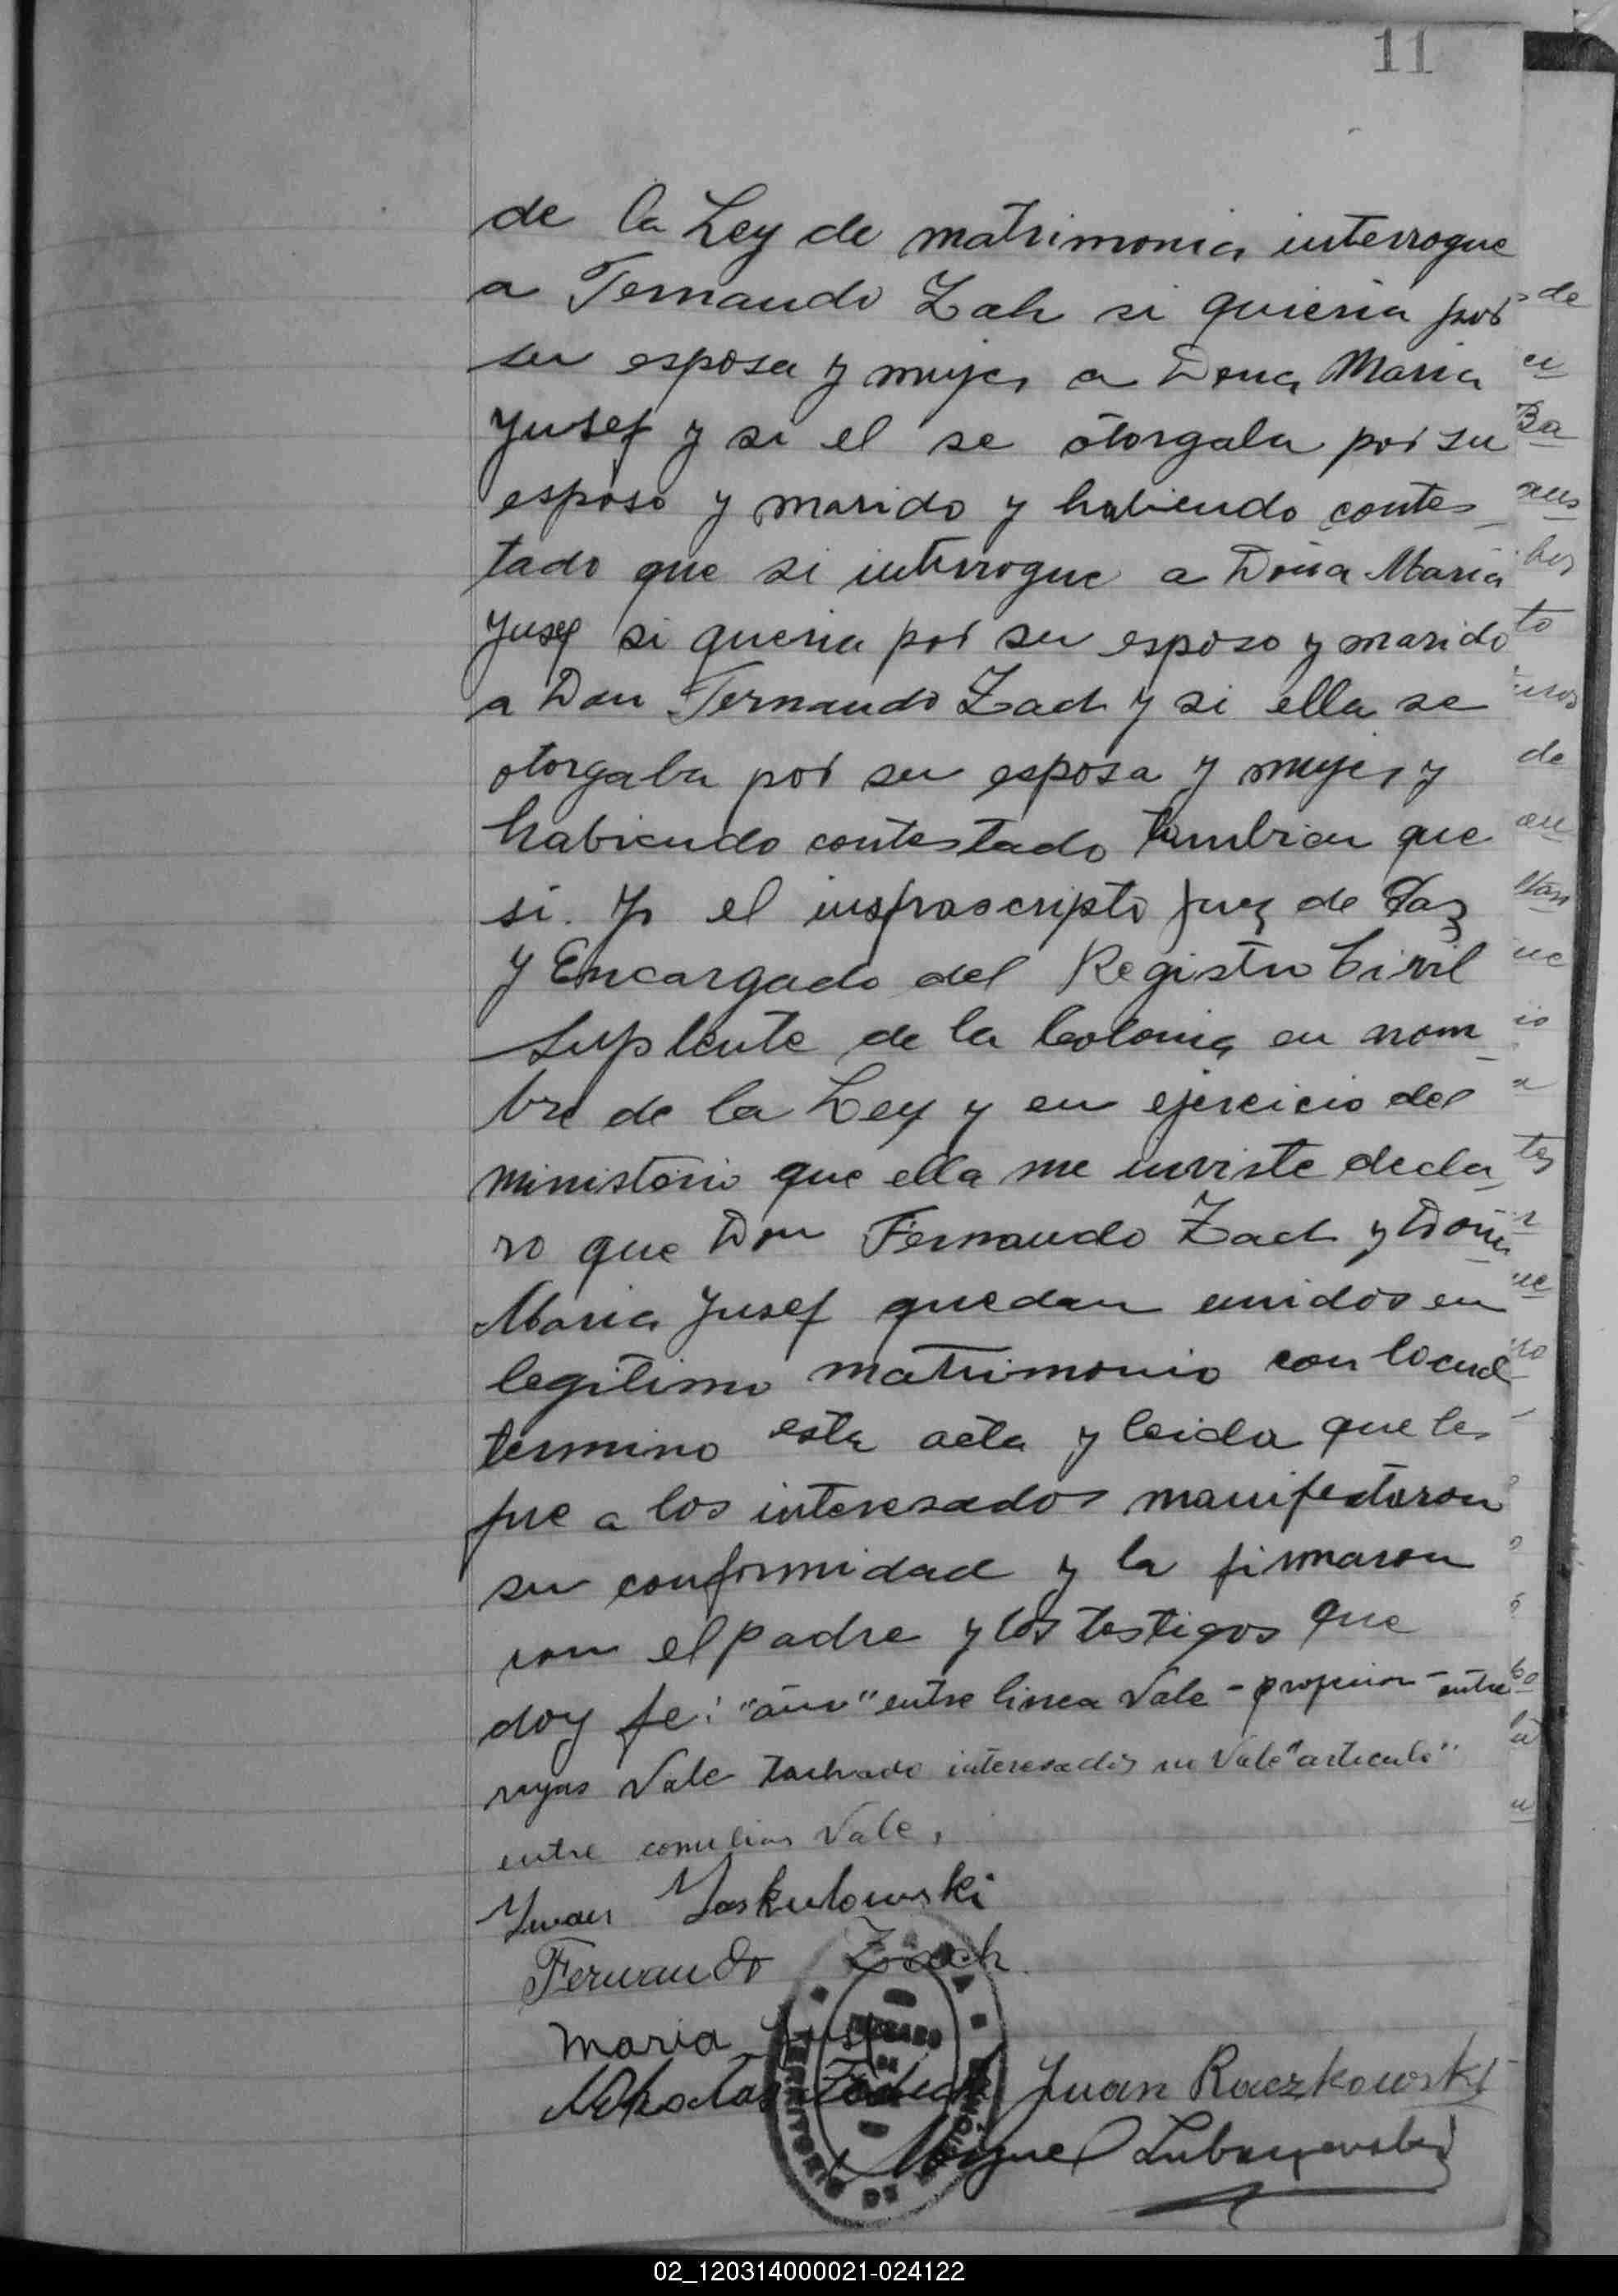 11
de la Ley de matrimonio interrogue
a Fernando Zah si quieria por
su esposa y mujer a Dona Maria
Jusef y si el se otorgaba por su
esposo y marido y habiendo contes_
tado que si interrogue a Doña Maria
Jusef si queria por su esposo y marido
a Don Fernando Zach y si ella se
otorgaba por su esposa y mujer y
habiendo contestado tambien que
si. Yo el insfrascripto Juez de Paz
y Encargado del Registro Civil
Suplente de la Colonia en nom_
bre de la Ley y en ejercicio del
ministerio que ella me inviste decla_
ro que Don Fernando Zach y Doña
Maria Jusef quedan unidos en
legitimo matrimonio con lo cual
termino esta acta y leida que les
fue a los interesados manifestaron
su conformidad y la firmaron
con el padre y los testigos que
doy fe: "año" entre linea Vale - profesion - entre
rayas Vale tachado interesados no Vale "articulo"
entre comillas Vale,
Juan Jaskulowski
Fernando Zach
Maria Jusef
Juan Raczkowski
Miguel
JUZGADO
DE
TERRITORIO DE
02_120314000021-024122